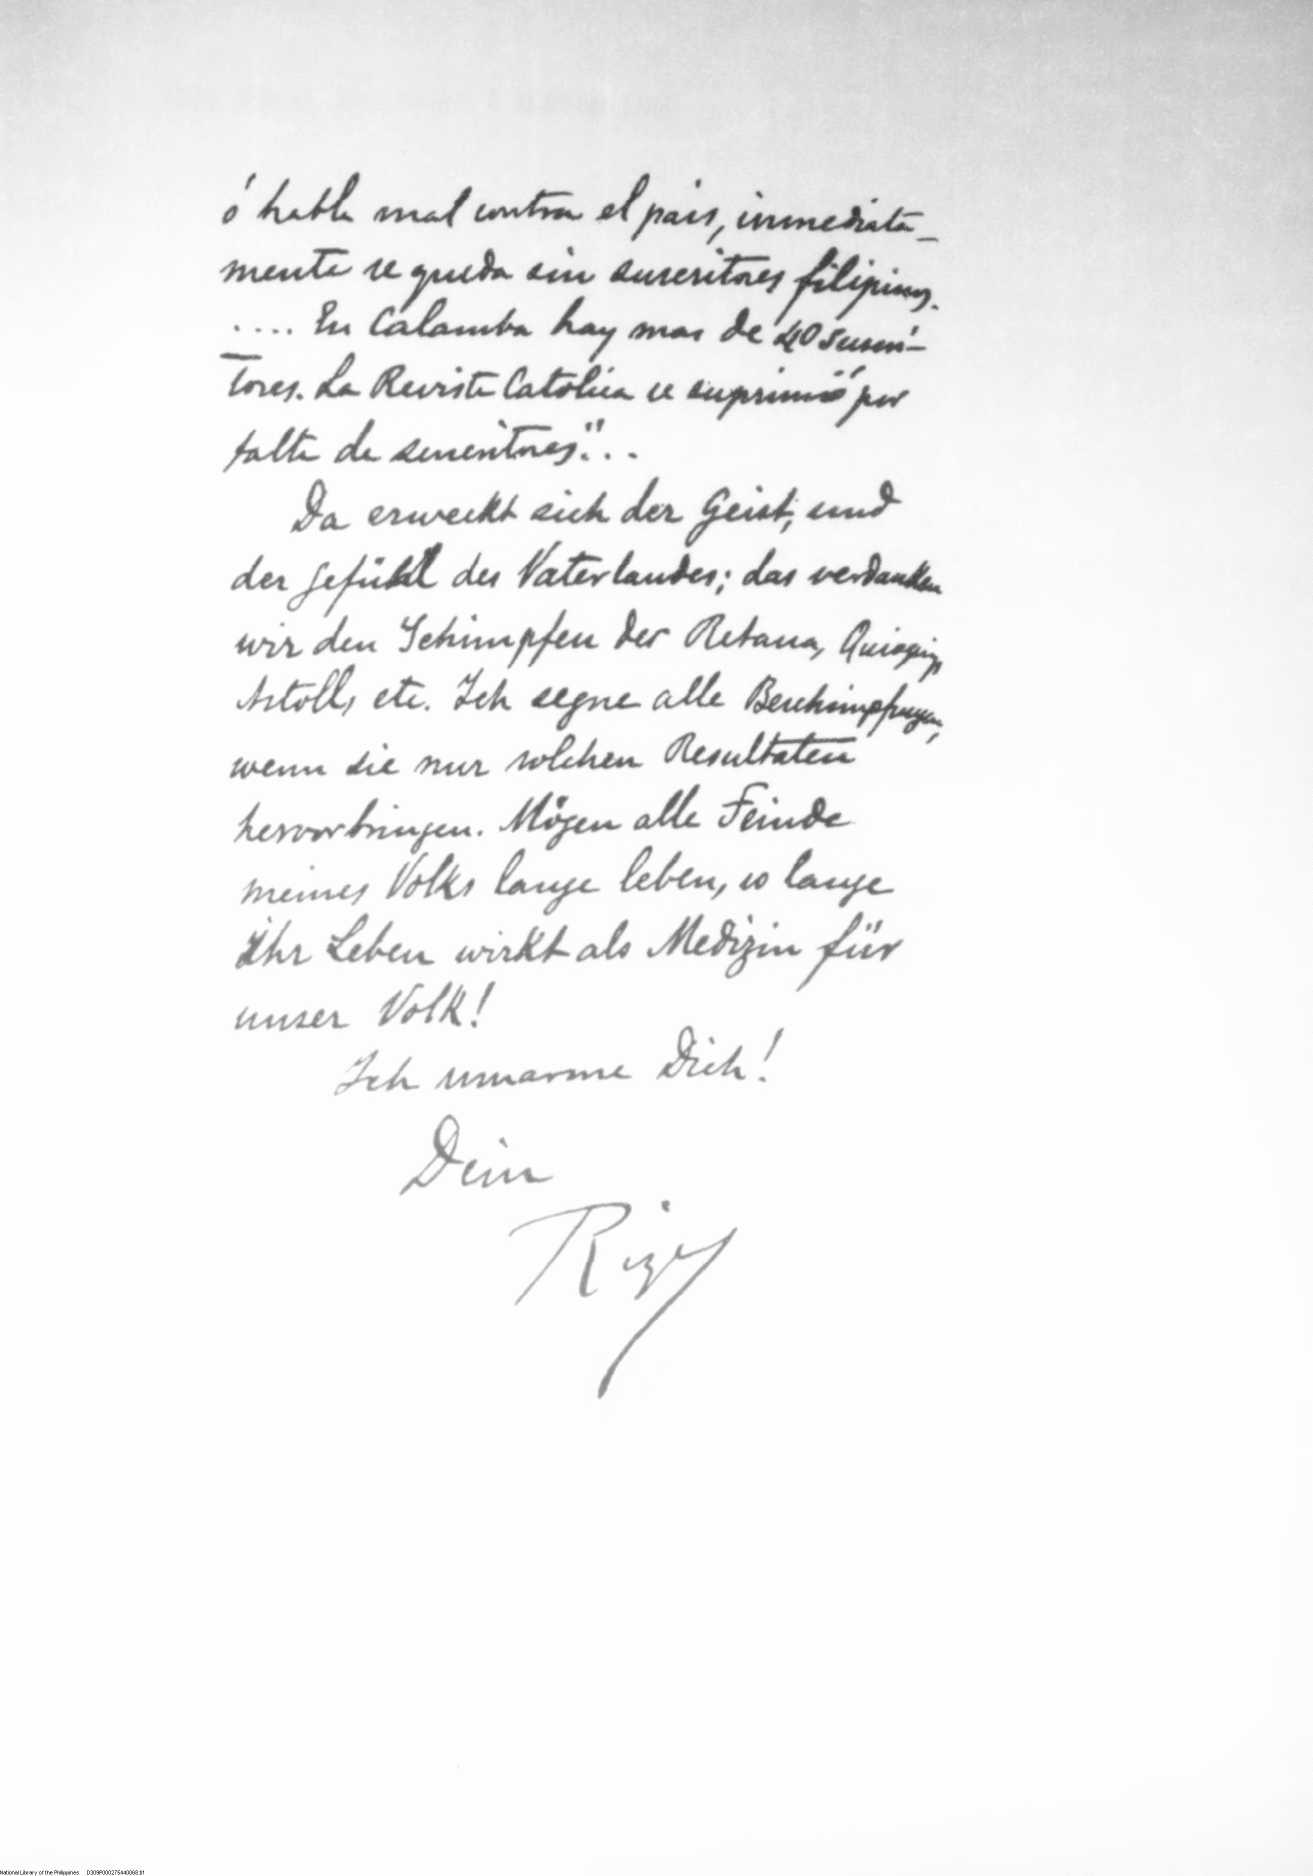 ó habla mal contra el pais, inmediata-
mente se queda sin suscritores filipinos.
.... En Calamba hay mas de 40 suscri-
tores. La Revista Catolica se suprimió por
falta de suscritores"...
Da erweckt sich der Geist, und
der Gefühl des Vaterlandes; das verdanken
wir den Schimpfen der Retana, Quioquiap
Astoll, etc. Ich segne alle Beschimpfungen,
wenn sie nur solchen Resultaten
hervorbringen. Mögen alle Feinde
meines Volks lange leben, so lange
Ihr Leben wirkt als Medizin für
unser Volk!
Ich umarme Dich!
Dein
Rizal
National Library of the Philippines